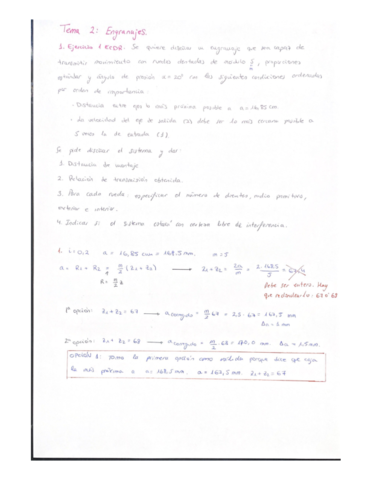 Tema 2: Engranajes.
1. Ejercicio 1 Se quiere diseñar un engranaje que sea capaz de
transmitir movimiento con ruedas dentadas de módulo 5, proporciones
estándar y ángulo de presión α = 20° con las siguientes condiciones ordenadas
por orden de importancia:
- Distancia entre ejes lo más próxima posible a a = 16,85 cm
- La velocidad del eje de salida (2) debe ser lo más cercana posible a
5 veces la de entrada (1).
Se pide diseñar el sistema y dar:
1. Distancia de montaje
2. Relación de transmisión obtenida.
3. Para cada rueda: especificar el número de dientes, radio primitivo,
exterior e interior.
4. Indicar si el sistema estará en montaje libre de interferencia.
1. i = 0.2 a = 16,85 cm = 168,5 mm m = 5
a = R1 + R2 = m/2 (z1 + z2) → z1 + z2 = 2a/m = 2·168,5/5 = 67,4
R = m/2 z
debe ser entero. Hay
que redondearlo: 67 ó 68
1ª opción: z1 + z2 = 67 → a corregida = m/2 · 67 = 2,5 · 67 = 167,5 mm
Δa = 1 mm
2ª opción: z1 + z2 = 68 → a corregida = m/2 · 68 = 170,0 mm Δa = 1.5 mm.
OPCIÓN 1: tomo la primera opción como válida porque dice que sea
lo más próximo a a = 168,5 mm. a = 167,5 mm z1 + z2 = 67